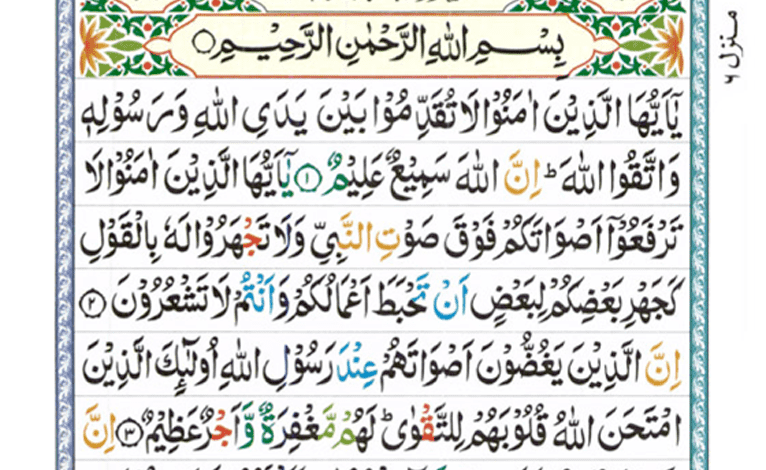 منزل ۶
بِسْمِ اللهِ الرَّحْمٰنِ الرَّحِيْمِ
يٰۤاَيُّهَا الَّذِيْنَ اٰمَنُوْا لَا تُقَدِّمُوْا بَيْنَ يَدَيِ اللهِ وَرَسُوْلِهٖ
وَاتَّقُوا اللهَ ؕ اِنَّ اللهَ سَمِيْعٌ عَلِيْمٌ ۝۱ يٰۤاَيُّهَا الَّذِيْنَ اٰمَنُوْا لَا
تَرْفَعُوْۤا اَصْوَاتَكُمْ فَوْقَ صَوْتِ النَّبِيِّ وَلَا تَجْهَرُوْا لَهٗ بِالْقَوْلِ
كَجَهْرِ بَعْضِكُمْ لِبَعْضٍ اَنْ تَحْبَطَ اَعْمَالُكُمْ وَاَنْتُمْ لَا تَشْعُرُوْنَ ۝۲
اِنَّ الَّذِيْنَ يَغُضُّوْنَ اَصْوَاتَهُمْ عِنْدَ رَسُوْلِ اللهِ اُولٰٓئِكَ الَّذِيْنَ
امْتَحَنَ اللهُ قُلُوْبَهُمْ لِلتَّقْوٰى ؕ لَهُمْ مَّغْفِرَةٌ وَّاَجْرٌ عَظِيْمٌ ۝۳ اِنَّ